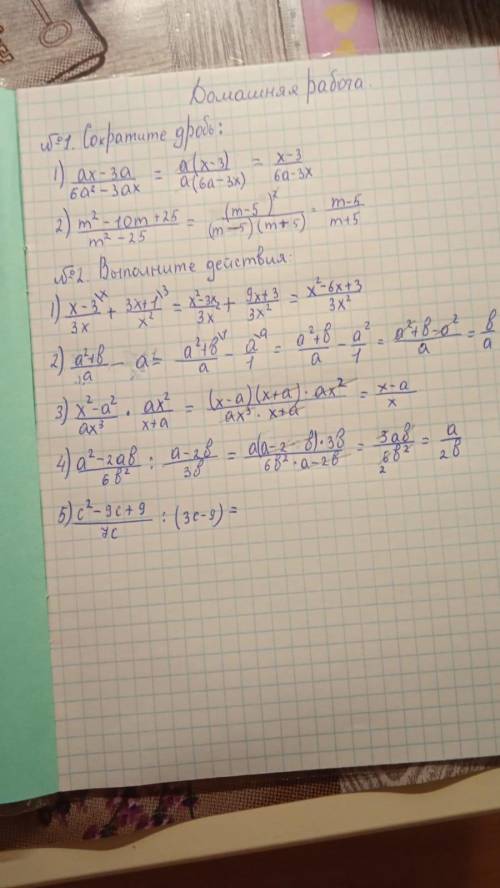 Домашняя работа.
№1. Сократите дробь:
1) (ax-3a)/(6a²-3ax) = a(x-3)/a(6a-3x) = (x-3)/(6a-3x)
2) (m²-10m+25)/(m²-25) = (m-5)²/(m-5)(m+5) = (m-5)/(m+5)
№2. Выполните действия:
1) (x-3)/3x \x + (3x+1)/x² \3 = (x²-3x)/3x + (9x+3)/3x² = (x²-6x+3)/3x²
2) (a²+b)/a - a = (a²+b)/a \1 - a/1 \a = (a²+b)/a - a²/1 = (a²+b-a²)/a = b/a
3) (x²-a²)/ax³ · ax²/(x+a) = (x-a)(x+a)·ax²/ax³·x+a = (x-a)/x
4) (a²-2ab)/6b² : (a-2b)/3b = a(a-2b)·3b/6b²·a-2b = 3ab/6b² 2 = a/2b
5) (c²-9c+9)/7c : (3c-9) =